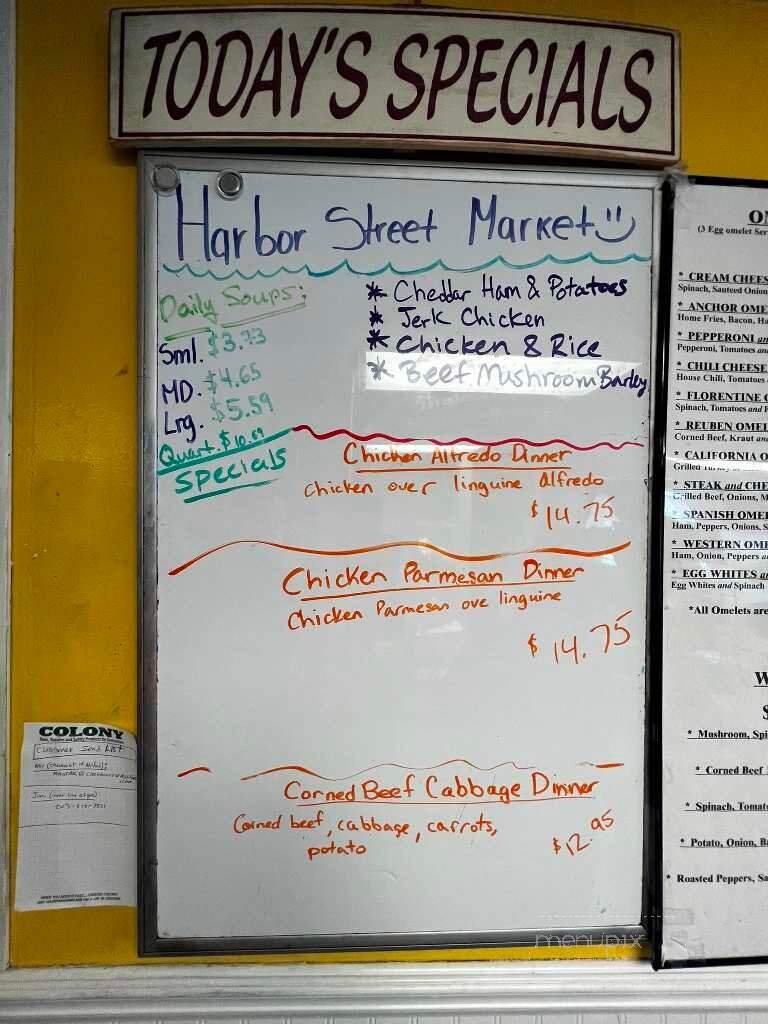 TODAY'S SPECIALS
Harbor Street Market
Daily Soups:
Sml. $3.73
MD. $4.65
Lrg. $5.59
Quart. $10.69
* Cheddar Ham & Potatoes
* Jerk Chicken
* Chicken & Rice
* Beef Mushroom Barley
Specials
Chicken Alfredo Dinner
Chicken over linguine Alfredo
$14.75
Chicken Parmesan Dinner
Chicken Parmesan ove linguine
$14.75
Corned Beef Cabbage Dinner
Corned beef, cabbage, carrots,
potato
$12.95
COLONY
Customer Send List
(3 Egg omelet Ser
* CREAM CHEES
Spinach, Sauteed Onion
* ANCHOR OME
Home Fries, Bacon, Ha
* PEPPERONI an
Pepperoni, Tomatoes an
* CHILI CHEESE
House Chili, Tomatoes
* FLORENTINE
Spinach, Tomatoes and F
* REUBEN OMEL
Corned Beef, Kraut and
* CALIFORNIA O
Grilled Turkey
* STEAK and CHE
Grilled Beef, Onions, M
* SPANISH OMEL
Ham, Peppers, Onions, S
* WESTERN OME
Ham, Onion, Peppers a
* EGG WHITES an
Egg Whites and Spinach
*All Omelets are
W
$
* Mushroom, Spi
* Corned Beef
* Spinach, Tomato
* Potato, Onion, Ba
* Roasted Peppers, Sa
menupix